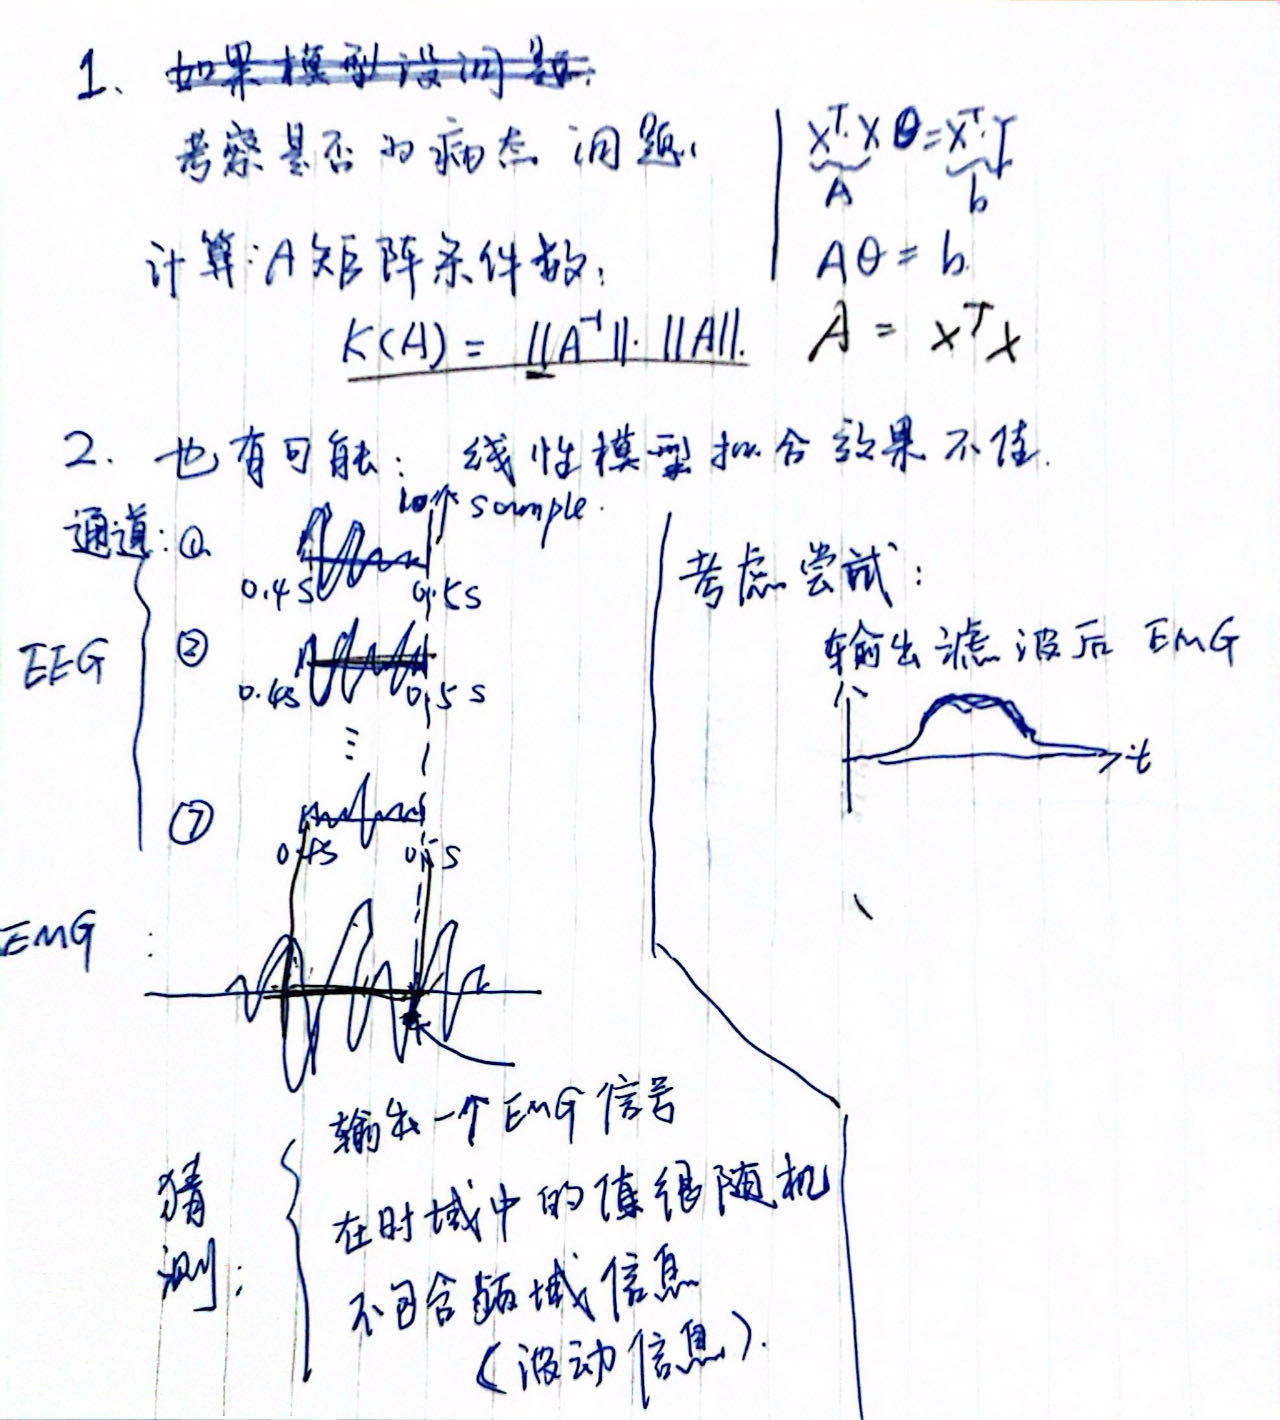 1、 如果模型没问题:
考察是否为病态问题.
XᵀXθ=XᵀY
A b
计算:A矩阵条件数:
Aθ = b.
K(A) = ||A⁻¹||·||A||.
A = xᵀx
2. 也有可能: 线性模型拟合效果不佳.
通道: ①
sample.
0.4s 0.5s
EEG
②
0.4s 0.5s
⋮
⑦
0.4s 0.5s
EMG :
输出一个EMG信号
猜测:
在时域中的值很随机
不包含频域信息
(波动信息).
考虑尝试:
输出滤波后 EMG
t